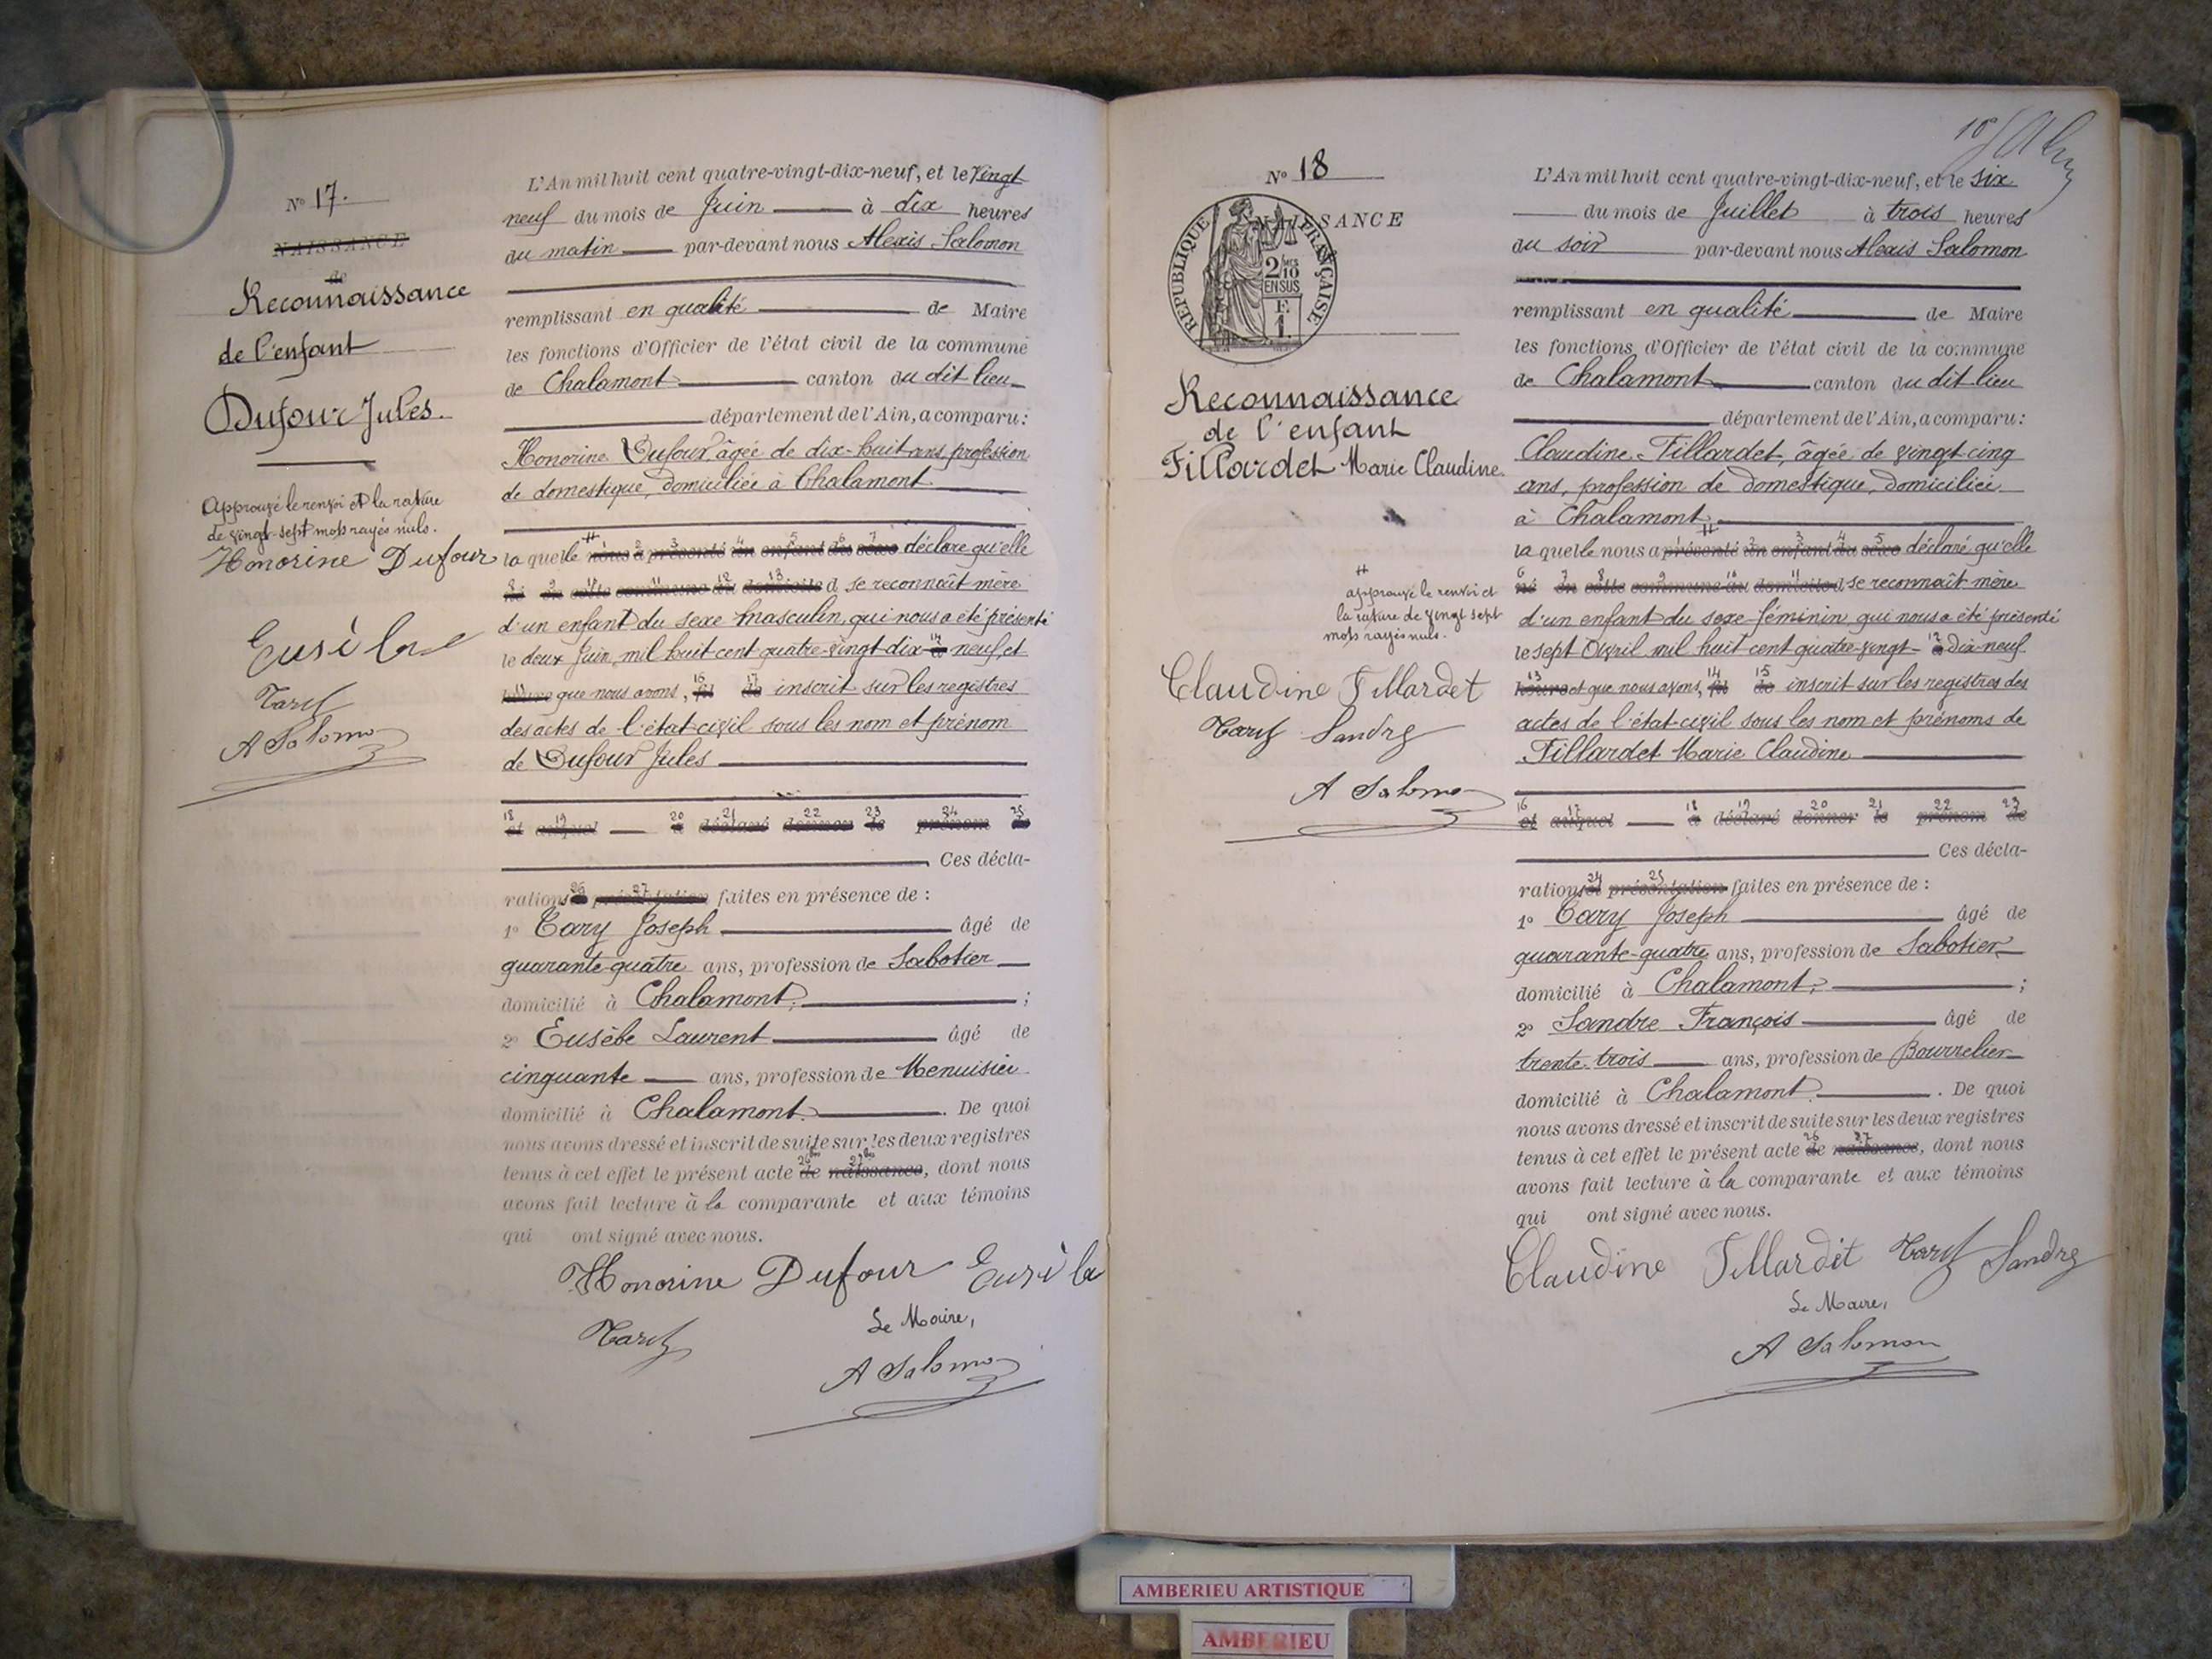 Nº 17.
NAISSANCE
de
Reconnaissance
de l'enfant
Dufour Jules.
Approuvé le renvoi et la rature
de vingt-sept mots rayés nuls.
Honorine Dufour
Eusèbe
Tary
A Salomon
L'An mil huit cent quatre-vingt-dix-neuf, et le vingt
neuf du mois de Juin à dix heures
du matin par-devant nous Alexis Salomon
remplissant en qualité de Maire
les fonctions d'Officier de l'état civil de la commune
de Chalamont canton du dit lieu
département de l'Ain, a comparu:
Honorine Dufour, âgée de dix-huit ans, profession
de domestique, domiciliée à Chalamont
la quelle nous a présenté un enfant du sexe déclare qu'elle
né en cette commune au domicile d se reconnaît mère
d'un enfant du sexe masculin, qui nous a été présenté
le deux Juin, mil huit cent quatre-vingt-dix à neuf, et
heure que nous avons, fils de inscrit sur les registres
des actes de l'état-civil sous les nom et prénom
de Dufour Jules
18 19 20 21 22 23 24 25
et auquel a déclaré donner le prénom de
Ces décla-
rations et présentation faites en présence de :
1º Tary Joseph âgé de
quarante-quatre ans, profession de Sabotier
domicilié à Chalamont, ;
2º Eusèbe Laurent âgé de
cinquante ans, profession de Menuisier
domicilié à Chalamont. . De quoi
nous avons dressé et inscrit de suite sur les deux registres
tenus à cet effet le présent acte de naissance, dont nous
avons fait lecture à la comparante et aux témoins
qui ont signé avec nous.
Honorine Dufour Eusèbe
Le Maire,
Tary
A Salomon
Nº 18
NAISSANCE
RÉPUBLIQUE FRANÇAISE
2/10
EN SUS
F.
1.
Reconnaissance
de l'enfant
Fillardet Marie Claudine
approuvé le renvoi et
la rature de vingt sept
mots rayés nuls.
Claudine Fillardet
Tary Sandre
A Salomon
L'An mil huit cent quatre-vingt-dix-neuf, et le six
du mois de Juillet à trois heures
du soir par-devant nous Alexis Salomon
remplissant en qualité de Maire
les fonctions d'Officier de l'état civil de la commune
de Chalamont canton du dit lieu
département de l'Ain, a comparu:
Claudine Fillardet, âgée de vingt-cinq
ans, profession de domestique, domiciliée
à Chalamont
la quelle nous a présenté un enfant du sexe déclaré qu'elle
né en cette commune au domicile d se reconnaît mère
d'un enfant du sexe féminin qui nous a été présenté
le sept Avril mil huit cent quatre-vingt- à dix-neuf
heure et que nous avons, fils de inscrit sur les registres des
actes de l'état-civil sous les nom et prénoms de
Fillardet Marie Claudine
16 17 18 19 20 21 22 23
et auquel a déclaré donner le prénom de
Ces décla-
rations et présentation faites en présence de :
1º Tary Joseph âgé de
quarante-quatre ans, profession de Sabotier
domicilié à Chalamont, ;
2º Sandre François âgé de
trente-trois ans, profession de Bourrelier
domicilié à Chalamont. . De quoi
nous avons dressé et inscrit de suite sur les deux registres
tenus à cet effet le présent acte de naissance, dont nous
avons fait lecture à la comparante et aux témoins
qui ont signé avec nous.
Claudine Fillardet Tary Sandre
Le Maire,
A Salomon
AMBERIEU ARTISTIQUE
AMBERIEU